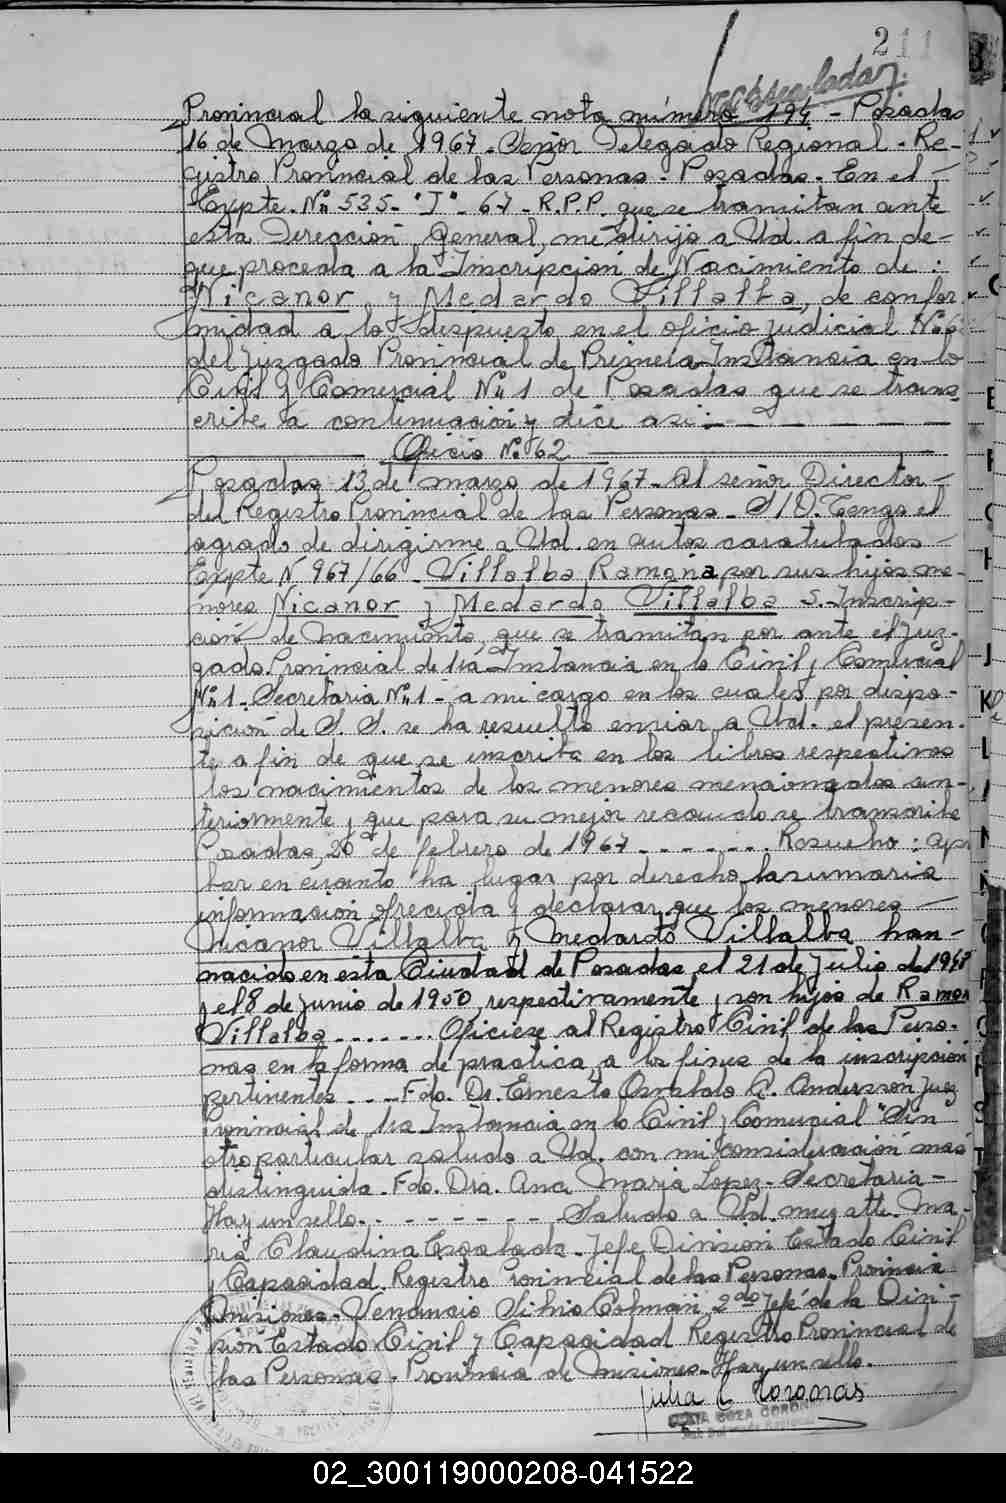 211
Provincial la siguiente nota número 194 - Posadas
16 de Marzo de 1967. Señor Delegado Regional - Re-
gistro Provincial de las Personas - Posadas - En el
Expte. Nº 535 - "J" - 67 - R.P.P. que se tramitan ante
esta Dirección General, me dirijo a Ud. a fin de
que proceda a la Inscripción de Nacimiento de:
Nicanor y Medardo Villalba, de confor
midad a lo dispuesto en el oficio judicial Nº 6
del Juzgado Provincial de Primera Instancia en lo
Civil y Comercial Nº 1 de Posadas que se trans
cribe a continuación y dice así:
Oficio Nº 62
Posadas 13 de marzo de 1967. Al señor Director
del Registro Provincial de las Personas - S/D. Tengo el
agrado de dirigirme a Ud. en autos caratulados
Expte N 967/66 - Villalba Ramona por sus hijos me-
nores Nicanor y Medardo Villalba S. Inscrip-
ción de Nacimiento, que se tramitan por ante el Juz-
gado Provincial de 1ra Instancia en lo Civil y Comercial
Nº 1 - Secretaria Nº 1 - a mi cargo en los cuales por dispo-
sición de S. S. se ha resuelto enviar a Ud. el presen-
te a fin de que se inscriba en los libros respectivos
los nacimientos de los menores mencionados an-
teriormente y que para su mejor recaudo se transcribe
Posadas, 20 de febrero de 1967 - - - - - - - Resuelvo: apro
bar en cuanto ha lugar por derecho la sumaria
información ofrecida y declarar que los menores
Nicanor Villalba y Medardo Villalba han
nacido en esta Ciudad de Posadas el 21 de Julio de 1948
y el 8 de Junio de 1950, respectivamente, y son hijos de Ramona
Villalba . . . . . . . Ofíciese al Registro Civil de las Perso-
nas en la forma de practica, a los fines de la inscripción
pertinentes . . . . Fdo. Dr. Ernesto Osvaldo A. Andersson Juez
Provincial de 1ra Instancia en lo Civil y Comercial "Sin
otro particular saludo a Ud. con mi consideración más
distinguida. Fdo. Dra. Ana Maria Lopez - Secretaria -
Hay un sello. - - - - - - - Saludo a Ud. muy atte. Ma-
ria Claudina Escalada - Jefe Division Estado Civil
y Capacidad Registro Provincial de las Personas. Provincia
Misiones - Venancio Silvio Colman 2do Jefe de la Divi-
sión Estado Civil y Capacidad Registro Provincial de
las Personas - Provincia de Misiones - Hay un sello.
02_300119000208-041522